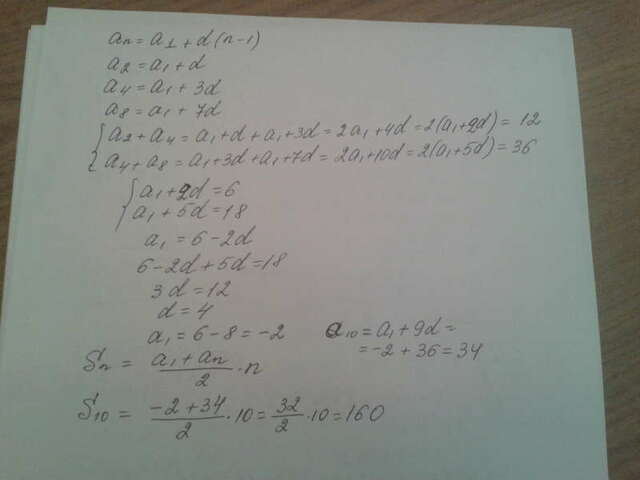 an = a1 + d(n-1)
a2 = a1 + d
a4 = a1 + 3d
a8 = a1 + 7d
{ a2 + a4 = a1 + d + a1 + 3d = 2a1 + 4d = 2(a1 + 2d) = 12
{ a4 + a8 = a1 + 3d + a1 + 7d = 2a1 + 10d = 2(a1 + 5d) = 36
{ a1 + 2d = 6
{ a1 + 5d = 18
a1 = 6 - 2d
6 - 2d + 5d = 18
3d = 12
d = 4
a1 = 6 - 8 = -2
a10 = a1 + 9d =
= -2 + 36 = 34
Sn = (a1 + an)/2 · n
S10 = (-2 + 34)/2 · 10 = 32/2 · 10 = 160